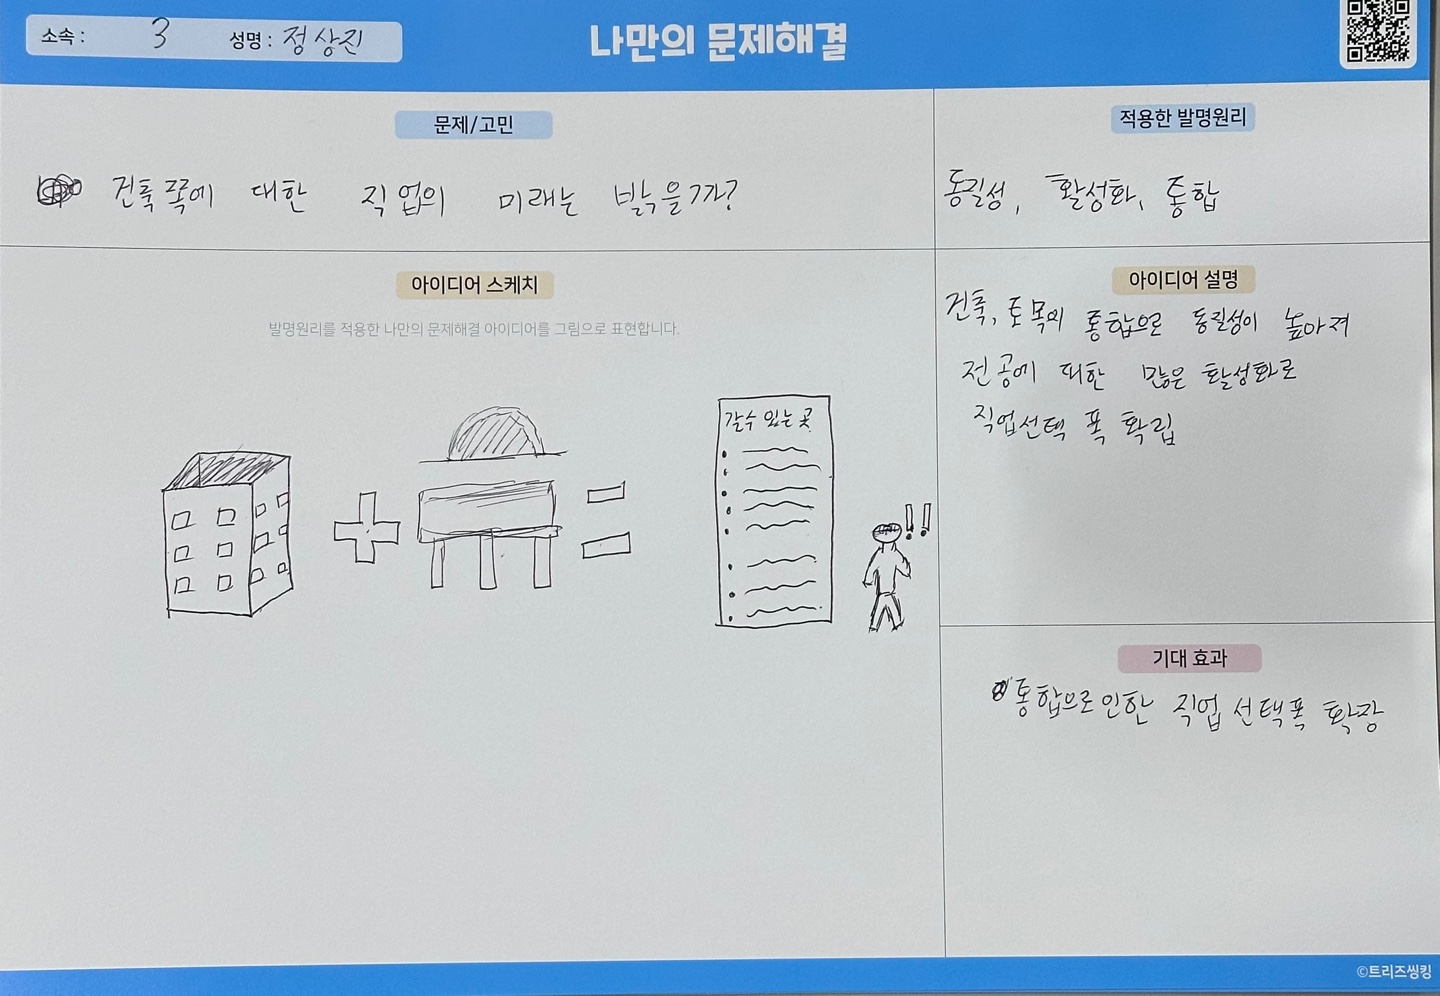 소속 : 3 성명 : 정상진
나만의 문제해결
문제/고민
건축 쪽에 대한 직업의 미래는 밝을까?
적용한 발명원리
동질성, 활성화, 통합
아이디어 스케치
발명원리를 적용한 나만의 문제해결 아이디어를 그림으로 표현합니다.
갈수 있는 곳
!!
아이디어 설명
건축, 토목의 통합으로 동질성이 높아져
전공에 대한 많은 활성화로
직업선택 폭 확립
기대 효과
통합으로 인한 직업 선택폭 확장
©트리즈씽킹